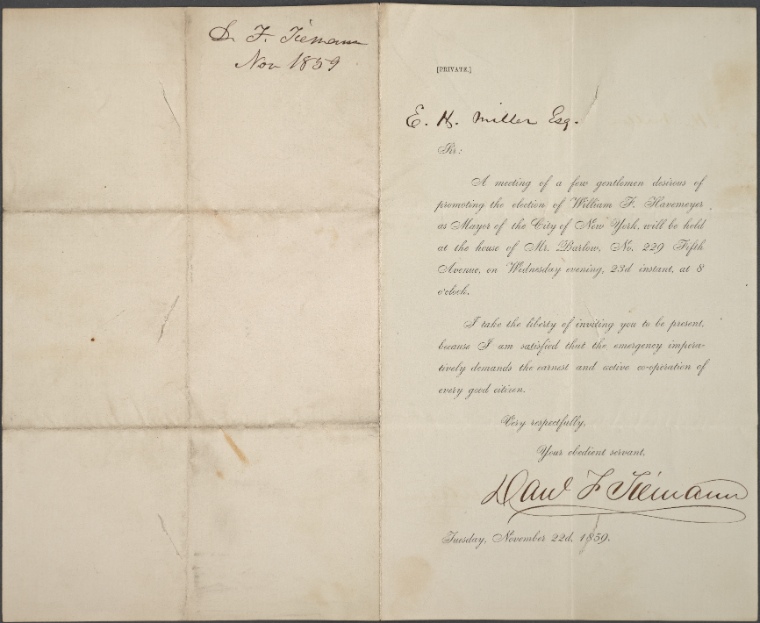 D. F. Tiemann
Nov 1859
[PRIVATE.]
E. H. Miller Esq.
Sir:
A meeting of a few gentlemen desirous of
promoting the election of William F. Havemeyer
as Mayor of the City of New York, will be held
at the house of Mr. Barlow, No. 229 Fifth
Avenue, on Wednesday evening, 23d instant, at 8
o'clock.
I take the liberty of inviting you to be present,
because I am satisfied that the emergency impera-
tively demands the earnest and active co-operation of
every good citizen.
Very respectfully,
Your obedient servant,
Danl F Tiemann
Tuesday, November 22d, 1859.